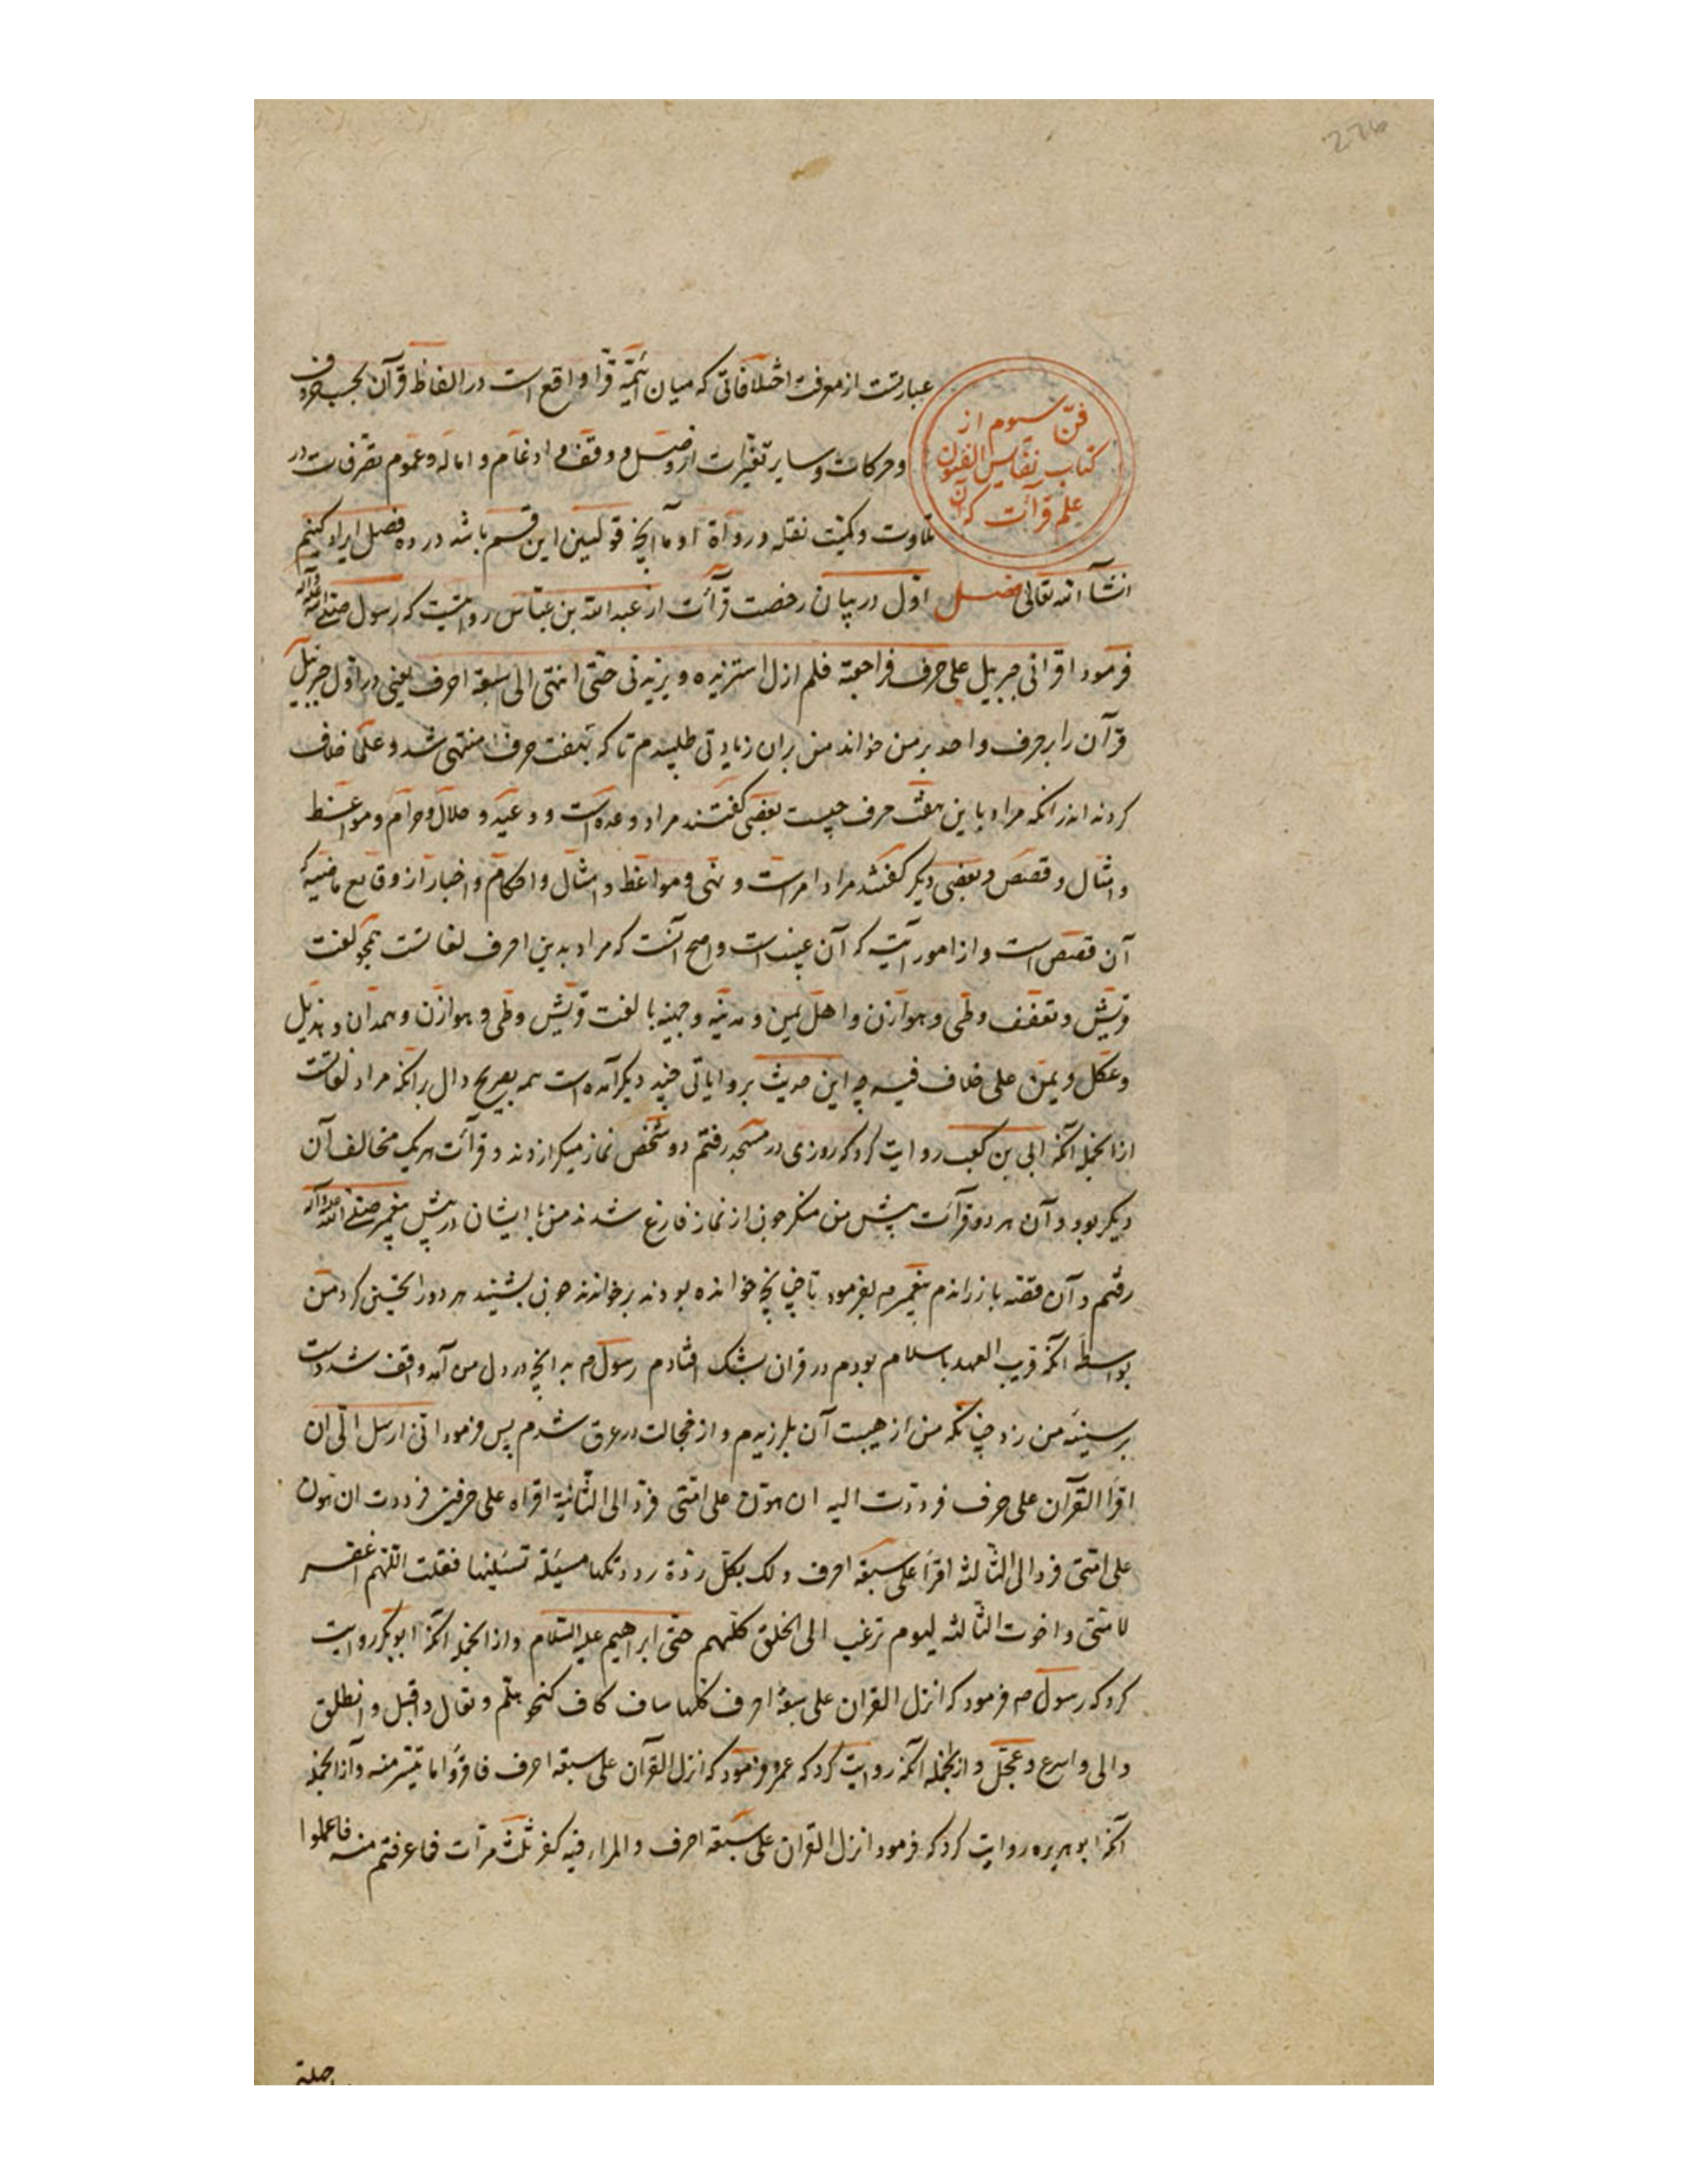 فنّ سیوم از
کتاب نفایس الفنون
علم قرآئت که آن
عبارتست از معرفت اختلافاتی که میان ائمّهٔ قرّا واقع است در الفاظ قرآن بحسب حروف
و حرکات و سایر تغیّرات از وصل و وقف و ادغام و اماله و عموم تصرفات در
تلاوت و کمیّت نقله و رواة او و ما آنچه این قسم باشد در ده فصل ایراد کنیم
انشآ الله تعالی فصل اول در بیان رخصت قرآئت از عبدالله بن عبّاس روایتست که رسول صلی الله علیه وآله
فرمود اقرانی جبریل علی حرف فراجعته فلم ازل استزیده و یزیدنی حتّی انتهی الی سبعة احرف یعنی در اوّل جبرئیل
قرآن را بر حرف واحد بر من خواند من بران زیادتی طلبیدم تا که بهفت حرف منتهی شد و علما خلاف
کرده اند در انکه مراد باین هفت حرف چیست بعضی کفتند مراد وعده است و وعید و حلال و حرام و مواعظ
و امثال و قصص و بعضی دیکر کفتند مراد امر است و نهی و مواعظ و امثال و احکام و اخبار از وقایع ماضیه که
آن قصص است و از امور آتیه که آن غیب است و اصح آنست که مراد بدین احرف لغاتست همچو لغت
قریش و ثقیف و طی و هوازن و اهل یمن و مدینه و جهینه با لغت قریش و طی و هوازن و همدان و هذیل
و عکل و یمن علی خلاف فیه چه این حدیث بروایاتی چند دیکر آمده است همه بصریح دال برانکه مراد لغاتست
ازانجمله آنکه ابی بن کعب روایت کرد که روزی در مسجد رفتم دو شخص نماز میکزاردند و قرآئت هر یک مخالف آن
دیکر بود و آن هر دو قرآئت پیش من منکر چون از نماز فارغ شدند من با ایشان در پیش پیغمبر صلی الله علیه وآله
رفتم و آن قصّه باز راندم پیغمبر م بفرمود تا چنانچه خوانده بودند برخواندند چون بشنید هر دو را تحسین کرد من
بواسطهٔ آنکه قریب العهد باسلام بودم در قران بشک افتادم رسول م بدانچه در دل من آمد واقف شد دست
بر سینهٔ من زد چنانکه من از هیبت آن بلرزیدم و از خجالت در عرق شدم پس فرمود انی ارسل الیّ ان
اقرَا القرآن علی حرف فرددت الیه ان هوّن علی امّتی فردّ الی الثّانیة اقراه علی حرفین فرددت ان هون
علی امّتی فرد الی الثّالثه اقرَا علی سبعة احرف ولک بکلّ ردّة رددتکها مسئلة تسئلنیها فقلت اللّهم اغفر
لامّتی و اخرت الثّالثه لیوم ترغب الی الخلق کلّهم حتی ابراهیم علیه السّلام و ازانجمله آنکه ابوبکر روایت
کرد که رسول م فرمود که انزل القران علی سبعة احرف کلها شاف کاف کنحو هلم و تعال و اقبل و انطلق
والی و اسرع و عجّل و ازانجمله آنکه روایت کرد که عمر فرمود که انزل القرآن علی سبعة احرف فاقرؤا ما تیسّر منه و ازانجمله
آنکه ابو هریره روایت کرد که فرمود انزل القران علی سبعة احرف و المراء فیه کفر ثلث مرّات فما عرفتم منه فاعملوا